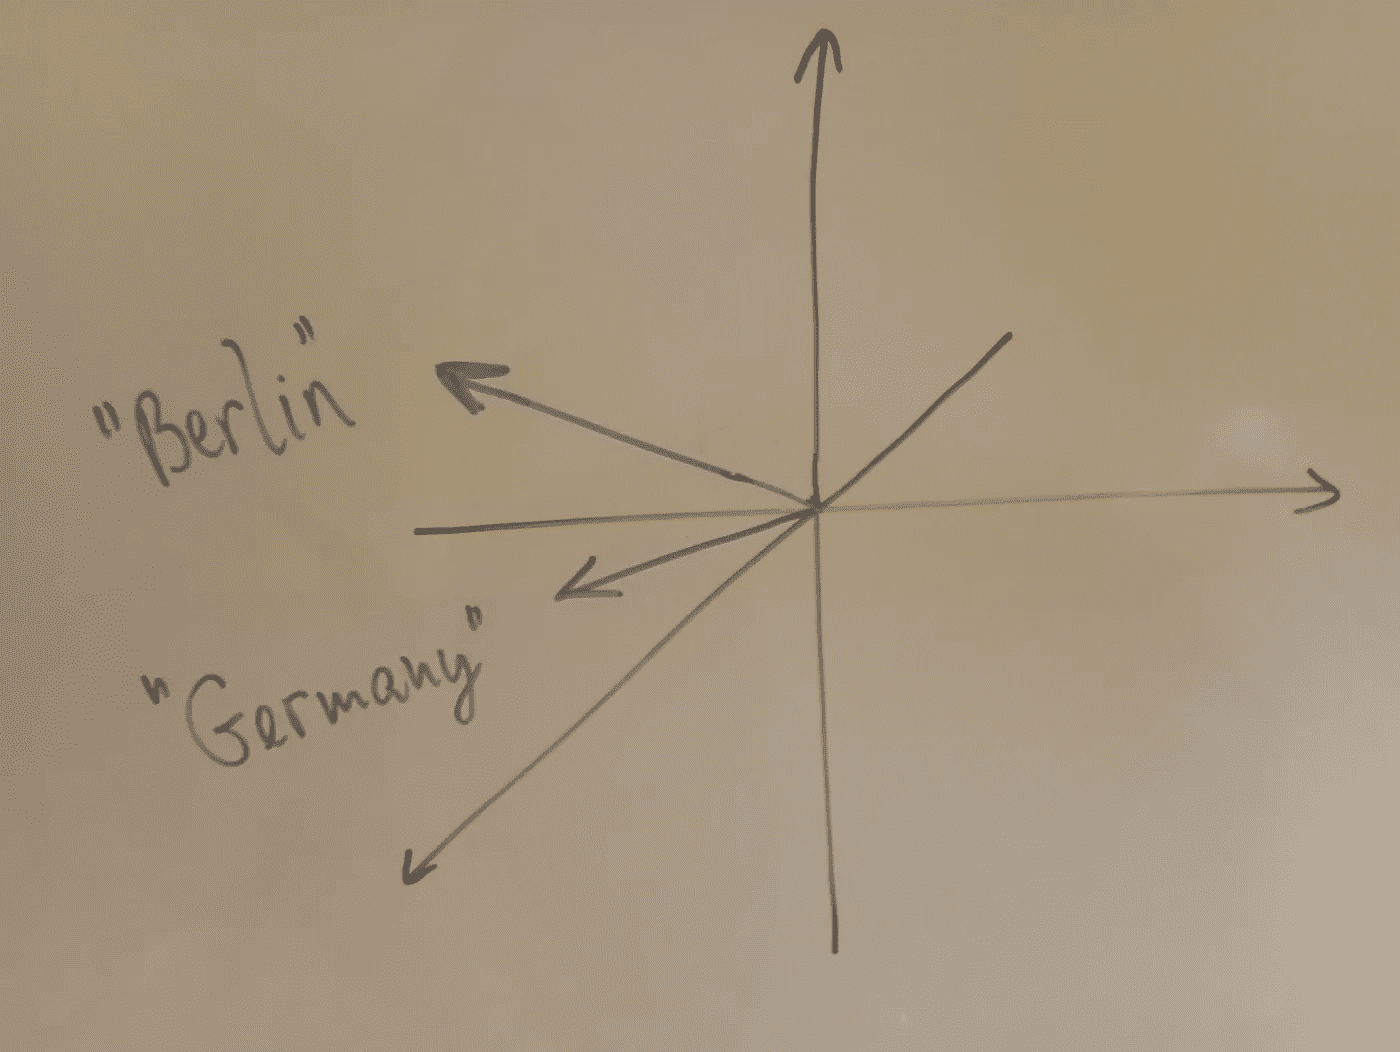 "Berlin"
"Germany"